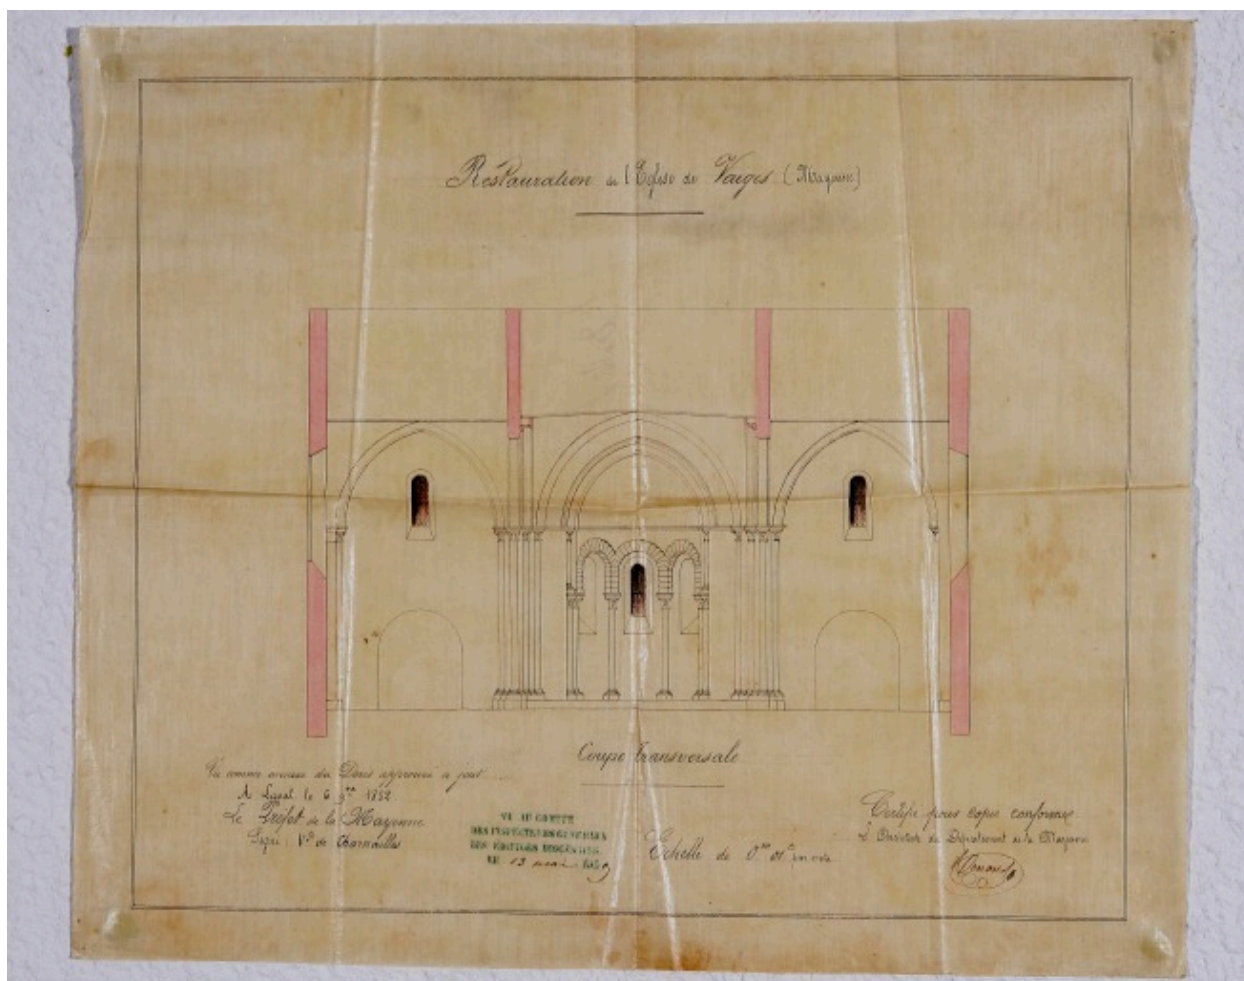 Restauration de l'Eglise de Vaiges. (Mayenne)
Coupe transversale
Vu comme annexe du Devis approuvé ce jour
A Laval le 6 9bre 1852
Le Préfet de la Mayenne
Signé: Vte de Charnailles
VU AU COMITÉ
DES INSPECTEURS GÉNÉRAUX
DES ÉDIFICES DIOCÉSAINS,
LE 13 mai
Echelle de 0m 01c
Certifié pour copie conforme
L'Architecte du Département de la Mayenne
Renous